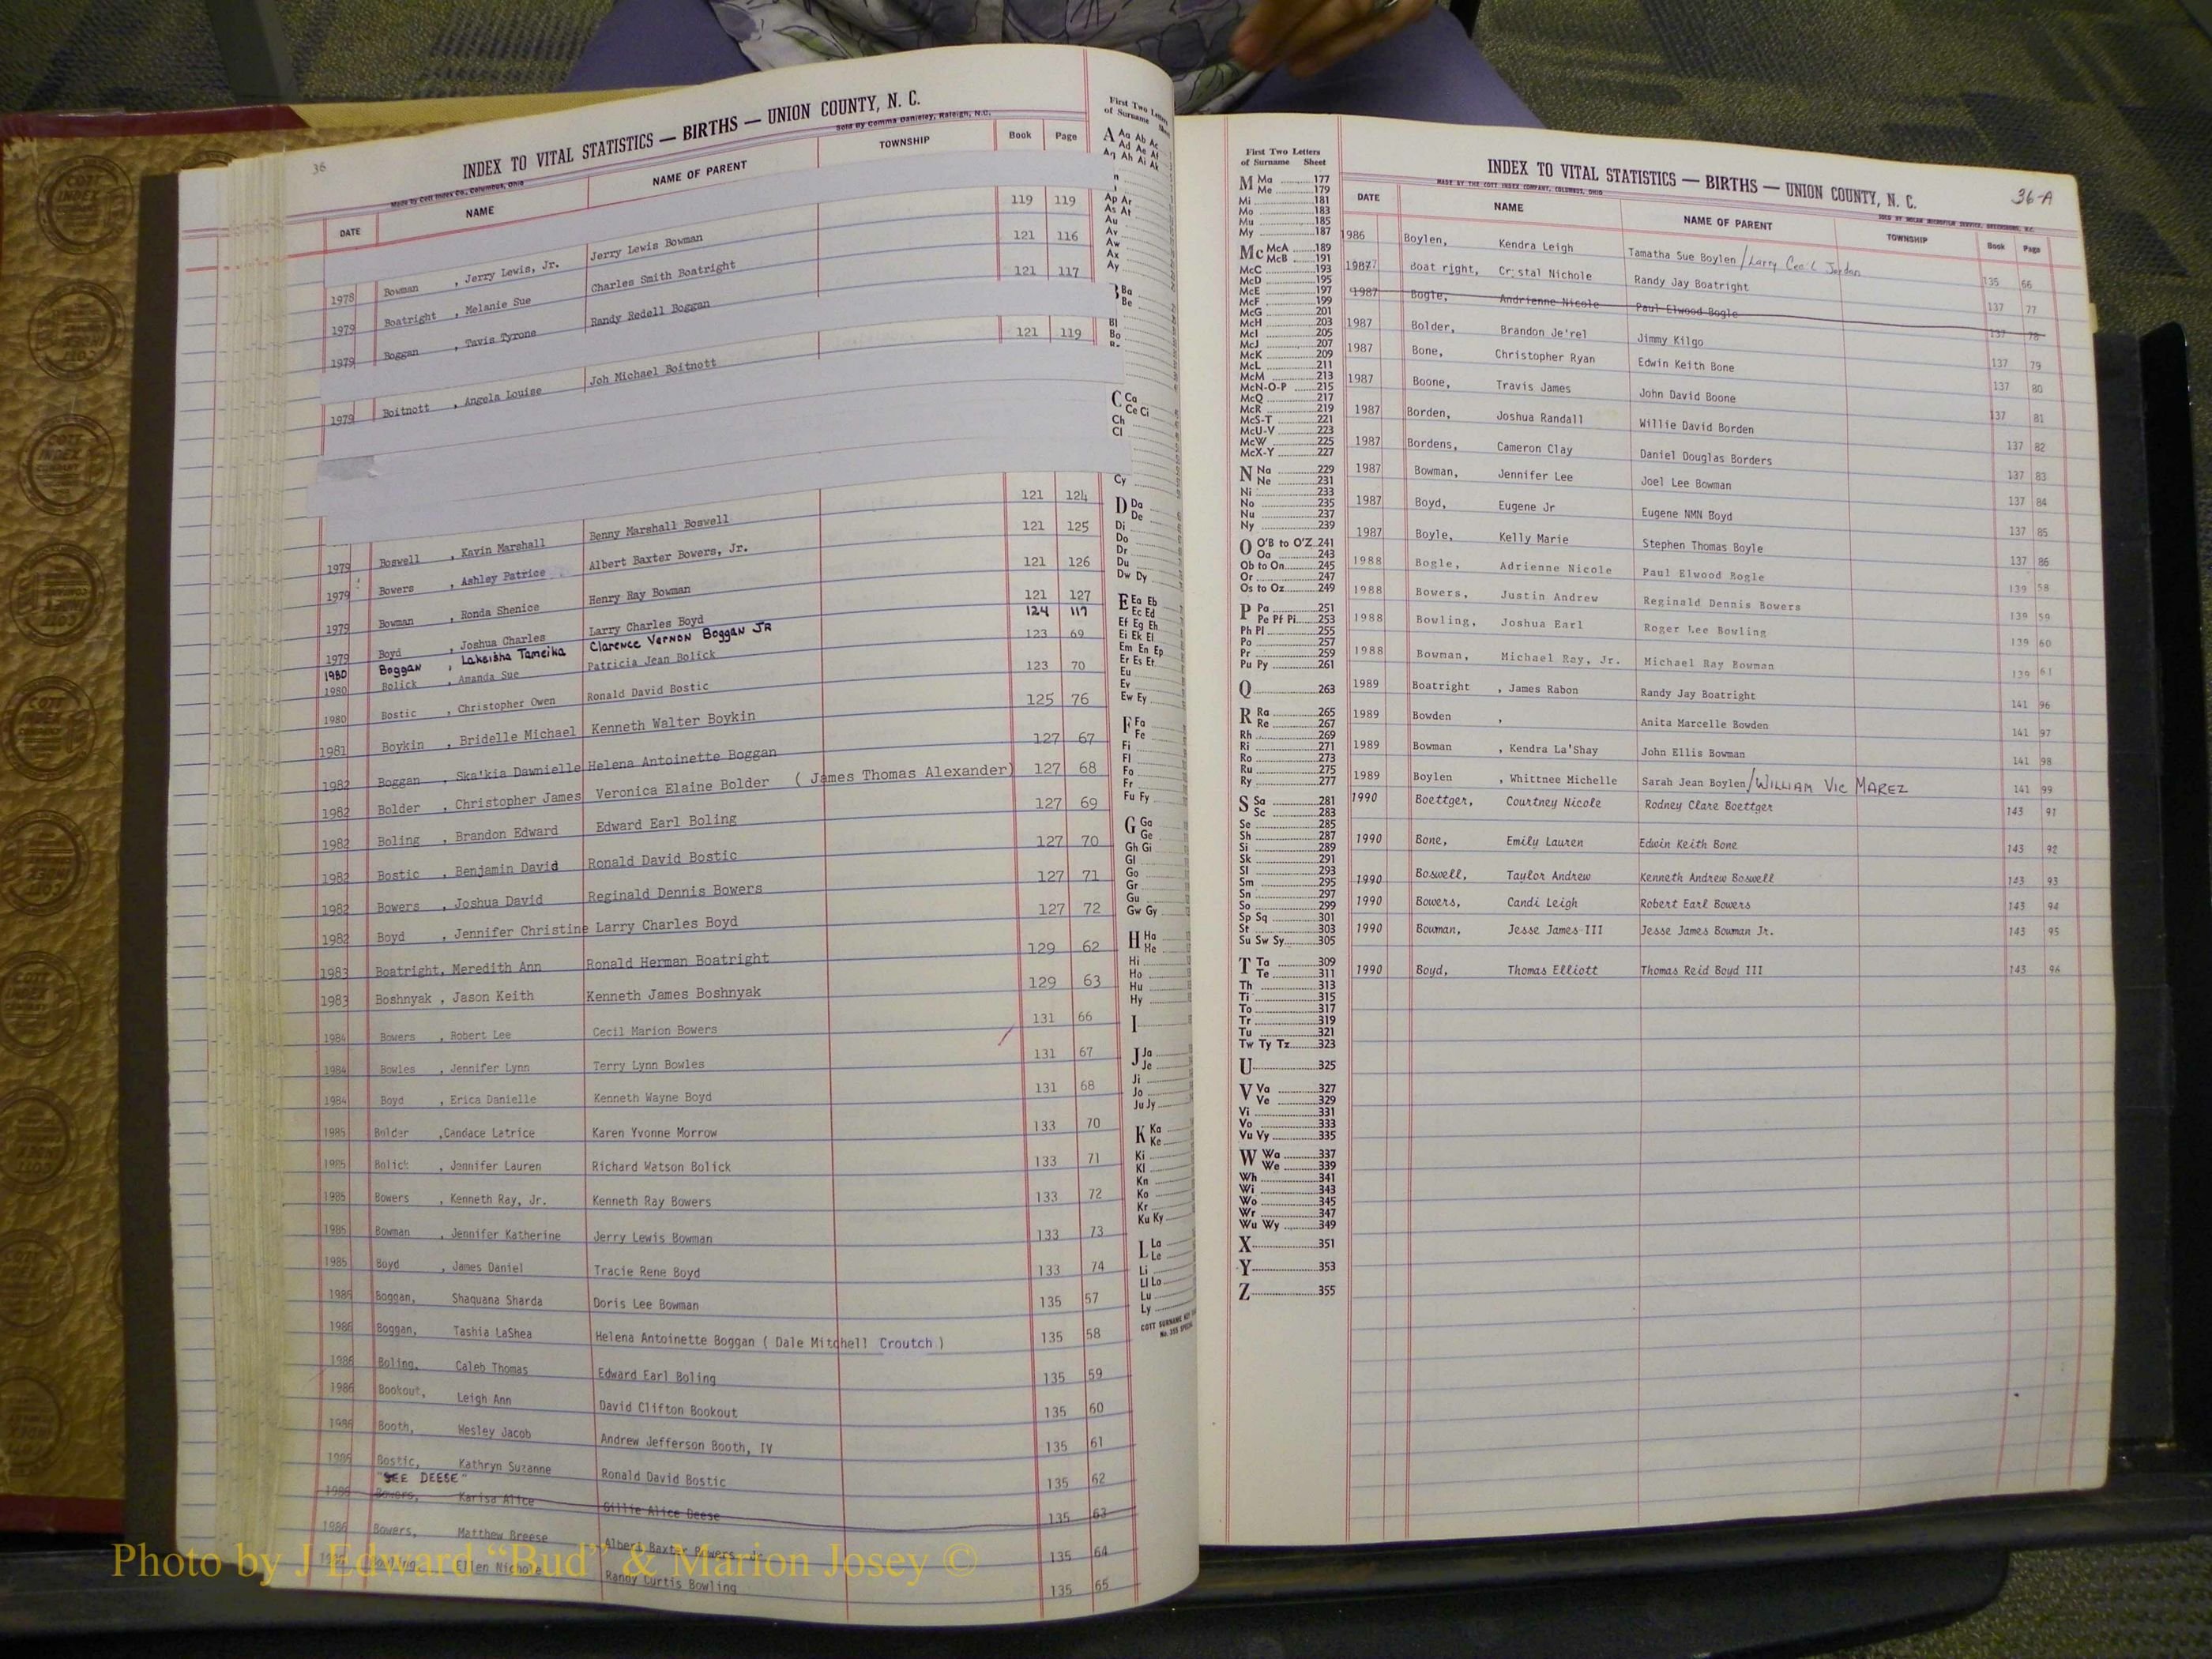 36
INDEX TO VITAL STATISTICS — BIRTHS — UNION COUNTY, N. C.
Made by Cott Index Co., Columbus, Ohio
Sold By Comma Danieley, Raleigh, N.C.
DATE NAME NAME OF PARENT TOWNSHIP Book Page
1978 Bowman , Jerry Lewis, Jr. Jerry Lewis Bowman 119 119
1979 Boatright , Melanie Sue Charles Smith Boatright 121 116
1979 Boggan , Tavis Tyrone Randy Redell Boggan 121 117
1979 Boitnott , Angela Louise Joh Michael Boitnott 121 119
1979 Boswell , Kavin Marshall Benny Marshall Boswell 121 124
1979 Bowers , Ashley Patrice Albert Baxter Bowers, Jr. 121 125
1979 Bowman , Ronda Shenice Henry Ray Bowman 121 126
1979 Boyd , Joshua Charles Larry Charles Boyd 121 127
1980 Boggan , Lakeisha Tameika Clarence Vernon Boggan JR 124 117
1980 Bolick , Amanda Sue Patricia Jean Bolick 123 69
1980 Bostic , Christopher Owen Ronald David Bostic 123 70
1981 Boykin , Bridelle Michael Kenneth Walter Boykin 125 76
1982 Boggan , Ska'kia Dawnielle Helena Antoinette Boggan 127 67
1982 Bolder , Christopher James Veronica Elaine Bolder ( James Thomas Alexander) 127 68
1982 Boling , Brandon Edward Edward Earl Boling 127 69
1982 Bostic , Benjamin David Ronald David Bostic 127 70
1982 Bowers , Joshua David Reginald Dennis Bowers 127 71
1982 Boyd , Jennifer Christine Larry Charles Boyd 127 72
1983 Boatright, Meredith Ann Ronald Herman Boatright 129 62
1983 Boshnyak , Jason Keith Kenneth James Boshnyak 129 63
1984 Bowers , Robert Lee Cecil Marion Bowers 131 66
1984 Bowles , Jennifer Lynn Terry Lynn Bowles 131 67
1984 Boyd , Erica Danielle Kenneth Wayne Boyd 131 68
1985 Bolder ,Candace Latrice Karen Yvonne Morrow 133 70
1985 Bolick , Jennifer Lauren Richard Watson Bolick 133 71
1985 Bowers , Kenneth Ray, Jr. Kenneth Ray Bowers 133 72
1985 Bowman , Jennifer Katherine Jerry Lewis Bowman 133 73
1985 Boyd , James Daniel Tracie Rene Boyd 133 74
1986 Boggan, Shaquana Sharda Doris Lee Bowman 135 57
1986 Boggan, Tashia LaShea Helena Antoinette Boggan ( Dale Mitchell Croutch ) 135 58
1986 Boling, Caleb Thomas Edward Earl Boling 135 59
1986 Bookout, Leigh Ann David Clifton Bookout 135 60
1986 Booth, Wesley Jacob Andrew Jefferson Booth, IV 135 61
1986 Bostic, Kathryn Suzanne Ronald David Bostic 135 62
"SEE DEESE"
1986 Bowers, Karisa Alice Gillie Alice Deese 135 63
1986 Bowers, Matthew Breese Albert Baxter Bowers, Jr. 135 64
1986 Bowling, Ellen Nichole Randy Curtis Bowling 135 65
First Two Letters
of Surname Sheet
A Aa Ab Ac
Ad Ae Af
Ag Ah Ai Ak
Ap Ar
As At
Au
Av
Aw
Ax
Ay
Ba
Be
Bl
Bo
C Ca
Ce Ci
Ch
Cl
Cy
D Da
De
Di
Do
Dr
Du
Dw Dy
E Ea Eb
Ec Ed
Ef Eg Eh
Ei Ek El
Em En Ep
Er Es Et
Eu
Ev
Ew Ey
F Fa
Fe
Fi
Fl
Fo
Fr
Fu Fy
G Ga
Ge
Gh Gi
Gl
Go
Gr
Gu
Gw Gy
H Ha
He
Hi
Ho
Hu
Hy
I
J Ja
Je
Ji
Jo
Ju Jy
K Ka
Ke
Ki
Kl
Kn
Ko
Kr
Ku Ky
L La
Le
Li
Ll Lo
Lu
Ly
First Two Letters
of Surname Sheet
M Ma 177
Me 179
Mi 181
Mo 183
Mu 185
My 187
Mc McA 189
McB 191
McC 193
McD 195
McE 197
McF 199
McG 201
McH 203
McI 205
McJ 207
McK 209
McL 211
McM 213
McN-O-P 215
McQ 217
McR 219
McS-T 221
McU-V 223
McW 225
McX-Y 227
N Na 229
Ne 231
Ni 233
No 235
Nu 237
Ny 239
O O'B to O'Z 241
Oa 243
Ob to On 245
Or 247
Os to Oz 249
P Pa 251
Pe Pf Pi 253
Ph Pl 255
Po 257
Pr 259
Pu Py 261
Q 263
R Ra 265
Re 267
Rh 269
Ri 271
Ro 273
Ru 275
Ry 277
S Sa 281
Sc 283
Se 285
Sh 287
Si 289
Sk 291
Sl 293
Sm 295
Sn 297
So 299
Sp Sq 301
St 303
Su Sw Sy 305
T Ta 309
Te 311
Th 313
Ti 315
To 317
Tr 319
Tu 321
Tw Ty Tz 323
U 325
V Va 327
Ve 329
Vi 331
Vo 333
Vu Vy 335
W Wa 337
We 339
Wh 341
Wi 343
Wo 345
Wr 347
Wu Wy 349
X 351
Y 353
Z 355
36-A
INDEX TO VITAL STATISTICS — BIRTHS — UNION COUNTY, N. C.
MADE BY THE COTT INDEX COMPANY, COLUMBUS, OHIO
DATE NAME NAME OF PARENT TOWNSHIP Book Page
1986 Boylen, Kendra Leigh Tamatha Sue Boylen / Larry Cecil Jordan 135 66
1987 Boat right, Crystal Nichole Randy Jay Boatright 137 77
1987 Bogle, Andrienne Nicole Paul Elwood Bogle 137 78
1987 Bolder, Brandon Je'rel Jimmy Kilgo 137 79
1987 Bone, Christopher Ryan Edwin Keith Bone 137 80
1987 Boone, Travis James John David Boone 137 81
1987 Borden, Joshua Randall Willie David Borden 137 82
1987 Bordens, Cameron Clay Daniel Douglas Borders 137 83
1987 Bowman, Jennifer Lee Joel Lee Bowman 137 84
1987 Boyd, Eugene Jr Eugene NMN Boyd 137 85
1987 Boyle, Kelly Marie Stephen Thomas Boyle 137 86
1988 Bogle, Adrienne Nicole Paul Elwood Rogle 139 58
1988 Bowers, Justin Andrew Reginald Dennis Bowers 139 59
1988 Bowling, Joshua Earl Roger Lee Bowling 139 60
1988 Bowman, Michael Ray, Jr. Michael Ray Bowman 139 61
1989 Boatright , James Rabon Randy Jay Boatright 141 96
1989 Bowden , Anita Marcelle Bowden 141 97
1989 Bowman , Kendra La'Shay John Ellis Bowman 141 98
1989 Boylen , Whittnee Michelle Sarah Jean Boylen/WILLIAM VIC MAREZ 141 99
1990 Boettger, Courtney Nicole Rodney Clare Boettger 143 91
1990 Bone, Emily Lauren Edwin Keith Bone 143 92
1990 Boswell, Taylor Andrew Kenneth Andrew Boswell 143 93
1990 Bowers, Candi Leigh Robert Earl Bowers 143 94
1990 Bowman, Jesse James III Jesse James Bowman Jr. 143 95
1990 Boyd, Thomas Elliott Thomas Reid Boyd III 143 96
Photo by J Edward "Bud" & Marion Josey ©